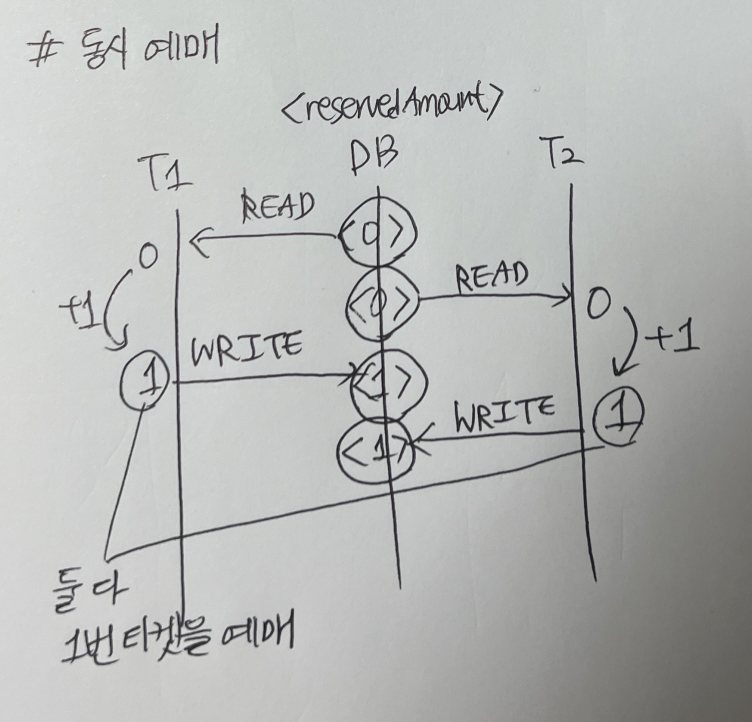 # 동시 예매
<reservedAmount>
T1 DB T2
READ <0>
0 <0> READ 0
+1 +1
1 WRITE <1>
<1> WRITE 1
둘 다
1번 티켓을 예매